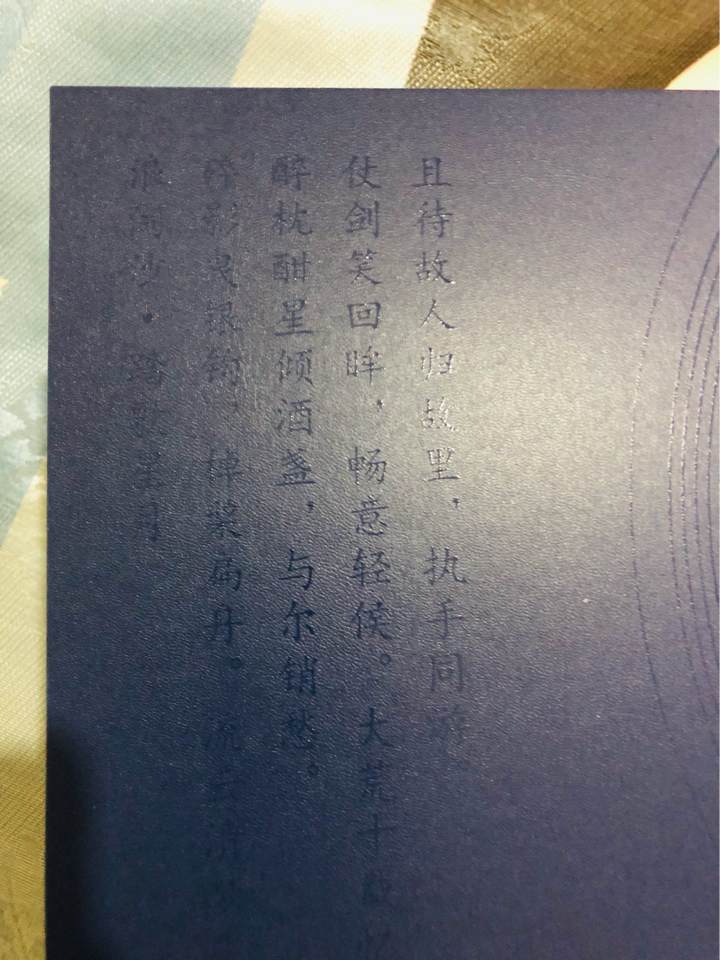 浪淘沙·踏歌星月
影曳银钩,棹桨扁舟。流云清
醉枕酣星倾酒盏,与尔销愁。
仗剑笑回眸,畅意轻侯。大荒十
且待故人归故里,执手同游。